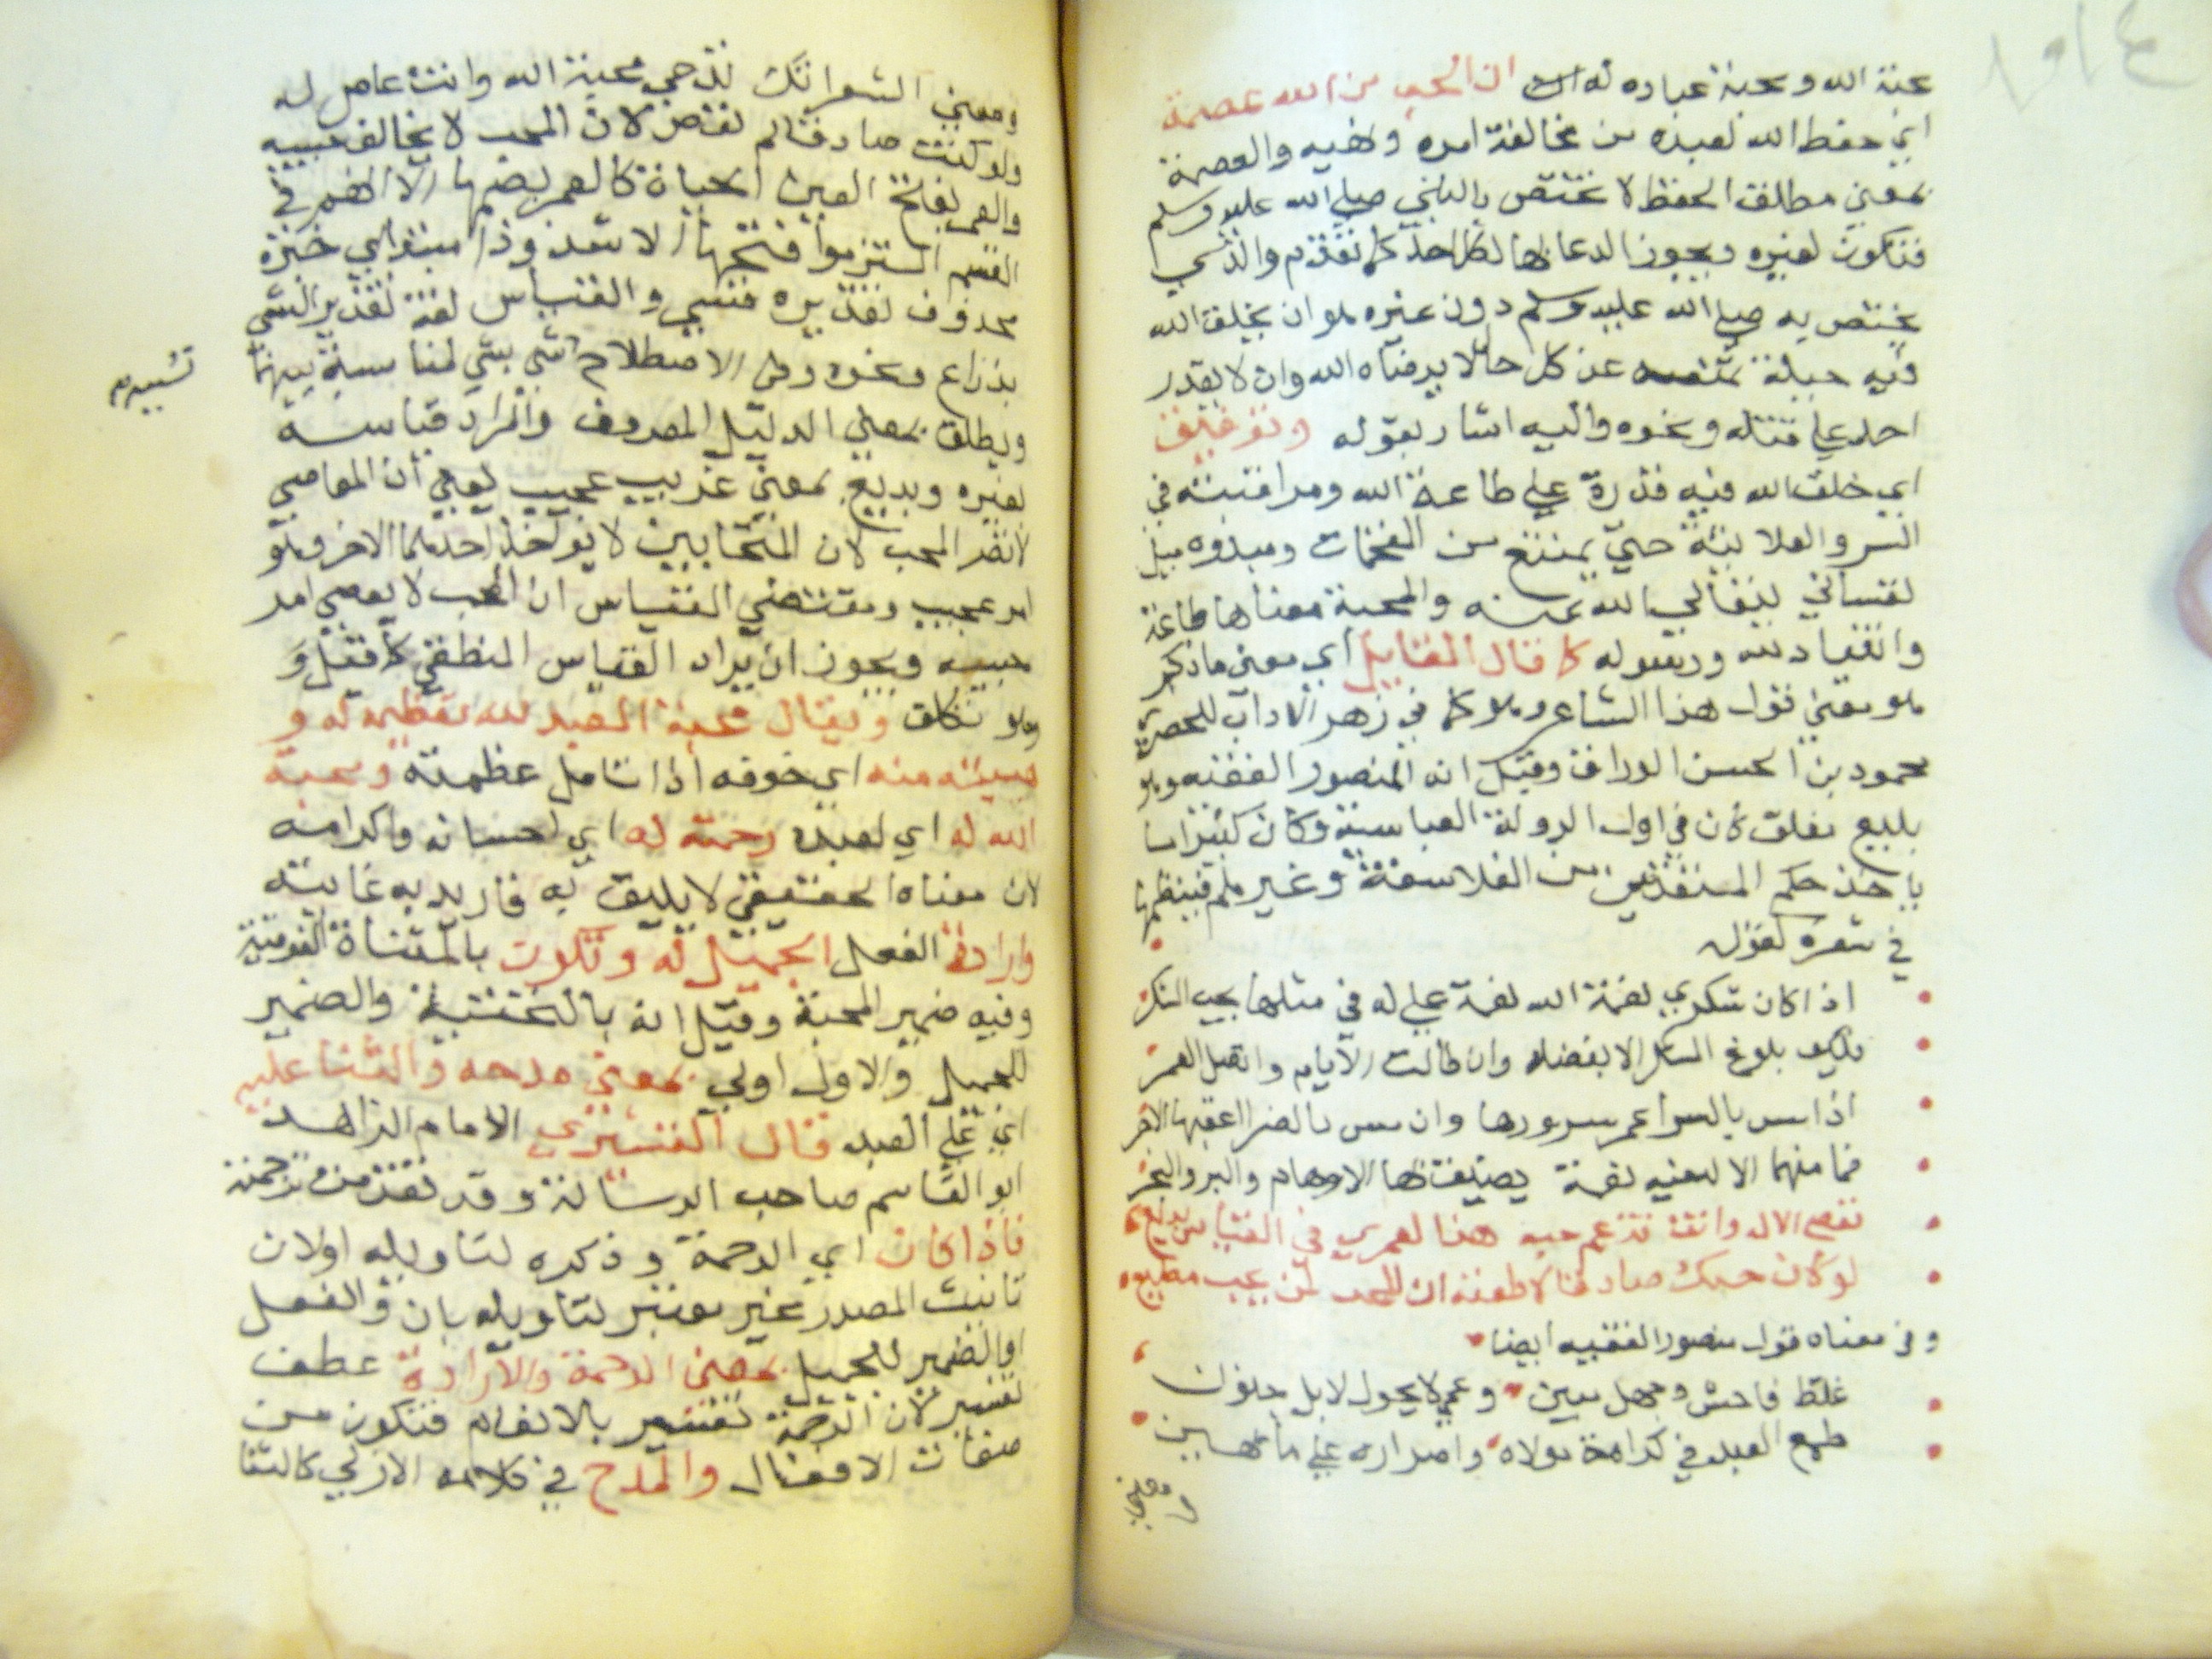 محبة الله ومحبة عباده له ان الحب من الله عصمة
اي حفظ الله لعبده من مخالفة امره ونهيه والعصمة
بمعني مطلق الحفظ لا تختص بالنبي صلي الله عليه وسلم
فتكون لغيره ويجوز الدعا بها لكل احد كما تقدم والذي
يختص به صلي الله عليه وسلم دون غيره هو ان يخلق الله
فيه جبلة تمنعه عن كل حال لا يرضاه الله وان لا يقدر
احد علي قتله ونحوه واليه اشار بقوله وتوفيق
اي خلق الله فيه قدرة علي طاعة الله ومراقبته في
السر والعلانية حتي يمتنع من
نفساني يتعالي الله عنه والمحبة معناها طاعة
وانقياد لله ورسوله كما قال القايل اي معني ما ذكر
هو معني قول هذا الشاعر وهو كما في زهر الاداب للحصري
محمود بن الحسن الوراق وقيل انه المنصور الفقيه وهو
بليغ مفلق كان في اول الدولة العباسية وكان كثيرا ما
ياخذ حكم المتقدمين من الفلاسفة وغيرهم فينظمها
في شعره كقوله
اذا كان شكري نعمة الله نعمة علي له في مثلها يجب الشكر
فكيف بلوغ الشكر الا بفضله وان طالت الايام واتصل العمر
اذا مس بالسرا عم سرورها وان مس بالضرا اعقبها الاجر
فما منهما الا له فيه نعمة يضيق بها الاوهام والبر والبحر
تعصي الاله وانت تزعم حبه هذا لعمري في القياس بديع
لو كان حبك صادقا لاطعته ان المحب لمن يحب مطيع
وفي معناه قول منصور الفقيه ايضا
غلط فاحش وجهل مبين وعمي لا يحول لا بل جنون
طمع العبد في كرامة مولاه واصراره علي ما يهين
ومعني الشعر انك تدعي محبة الله وانت عاص له
ولو كنت صادقا لم تعص لان المحب لا يخالف حبيبه
والعمر بفتح العين الحياة كالعمر بضمها الا انهم في
القسم التزموا فتحها الا شذوذا مبتدا خبره
محذوف تقديره قسمي والقياس لغة تقدير الشي
بذراع ونحوه وفي الاصطلاح شي بشي لمناسبة بينهما
تشبيه
ويطلق بمعني الدليل المعروف والمراد قياسه
لغيره وبديع بمعني غريب عجيب يعني ان المعاصي
لا تضر المحب لان المتحابين لا يواخذ احدهما الاخر وهو
امر عجيب ومقتضي القياس ان المحب لا يعصي امر
حبيبه ويجوز ان يراد القياس المنطقي كما قيل و
هو تكلف ويقال محبة العبد لله تعظيمه له و
هيبته منه اي خوفه اذا تامل عظمته ومحبة
الله له اي لعبده رحمته له اي احسانه واكرامه
لان معناه الحقيقي لا يليق به فاريد به غايته
وارادة الفعل الجميل له وتكون بالمثناة الفوقية
وفيه ضمير المحبة وقيل انه بالتحتية والضمير
للجميل والاول اولي بمعني مدحه والثنا عليه
اي علي العبد قال القشيري الامام الزاهد
ابو القاسم صاحب الرسالة وقد تقدمت ترجمته
فاذا كان اي الرحمة وذكره لتاويله اولان
تانيث المصدر غير معتبر لتاويله بان والفعل
او الضمير للجميل بمعني الرحمة والارادة عطف
تفسير لان الرحمة تفسر بالانعام فتكون من
صفات الافعال والمدح في كلامه الازلي كالثنا